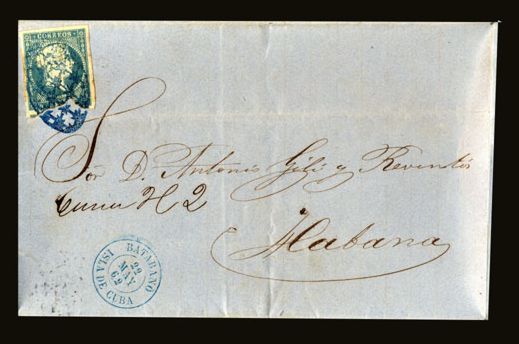 CORREOS
Sor D. Antonio Gili y Reventós
Cuna Nº 2
Habana
BATABANO
22
MAY
62
ISLA DE CUBA